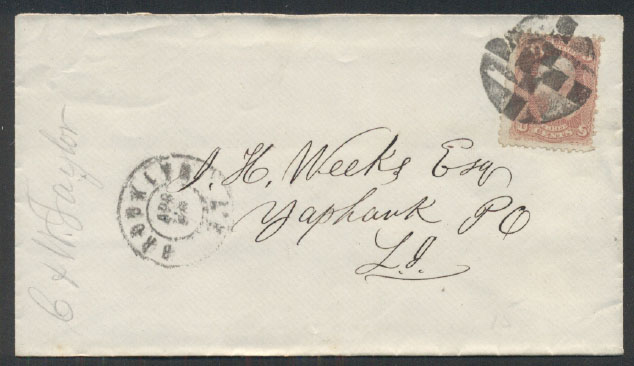 C & W Taylor
BROOKLYN N.Y.
APR
THREE
CENTS
J. H. Weeks Esq
Yaphank PO
L.I.